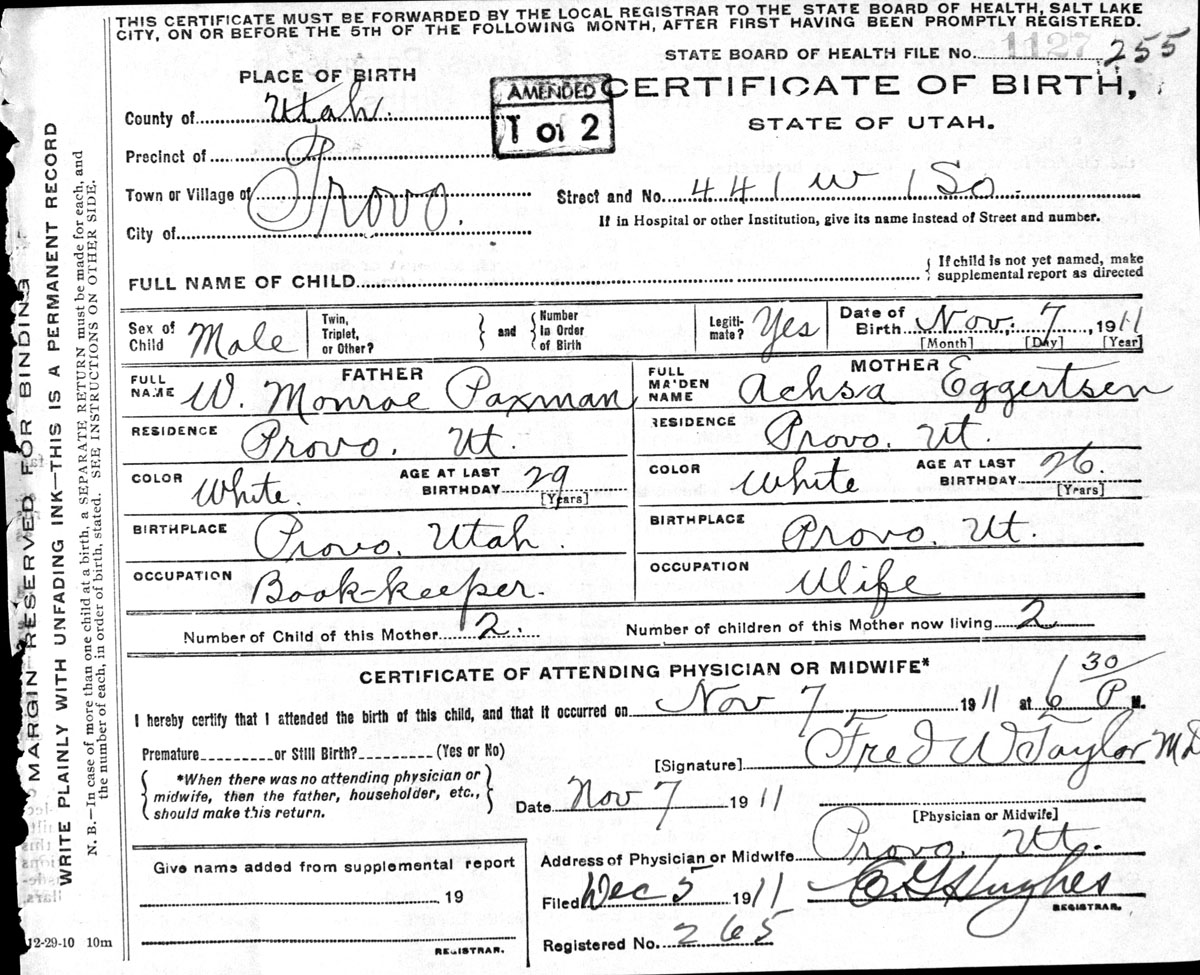 THIS CERTIFICATE MUST BE FORWARDED BY THE LOCAL REGISTRAR TO THE STATE BOARD OF HEALTH, SALT LAKE
CITY, ON OR BEFORE THE 5TH OF THE FOLLOWING MONTH, AFTER FIRST HAVING BEEN PROMPTLY REGISTERED.
STATE BOARD OF HEALTH FILE No. 1127 255
PLACE OF BIRTH
AMENDED
1 of 2
CERTIFICATE OF BIRTH,
STATE OF UTAH.
County of Utah.
Precinct of
Town or Village of Provo.
City of
Street and No. 441 W 1 So.
If in Hospital or other Institution, give its name instead of Street and number.
FULL NAME OF CHILD
{ If child is not yet named, make
supplemental report as directed
Sex of Child Male
Twin, Triplet, or Other? } and { Number in Order of Birth
Legitimate? Yes
Date of Birth Nov. 7, 1911
[Month] [Day] [Year]
FATHER
FULL NAME W. Monroe Paxman
RESIDENCE Provo. Ut.
COLOR White. AGE AT LAST BIRTHDAY 29 [Years]
BIRTHPLACE Provo. Utah.
OCCUPATION Book-keeper.
MOTHER
FULL MAIDEN NAME Achsa Eggertsen
RESIDENCE Provo. Ut.
COLOR White AGE AT LAST BIRTHDAY 26. [Years]
BIRTHPLACE Provo. Ut.
OCCUPATION Wife
Number of Child of this Mother 2. Number of children of this Mother now living 2
CERTIFICATE OF ATTENDING PHYSICIAN OR MIDWIFE*
I hereby certify that I attended the birth of this child, and that it occurred on Nov 7 1911 at 6 30/P M.
Premature or Still Birth? (Yes or No)
{ *When there was no attending physician or
midwife, then the father, householder, etc.,
should make this return. }
[Signature] Fred W Taylor MD
Date Nov 7 1911
[Physician or Midwife]
Address of Physician or Midwife Provo. Ut.
Give name added from supplemental report
19
REGISTRAR.
Filed Dec 5 1911 E. G Hughes
REGISTRAR.
Registered No. 265
12-29-10 10m
MARGIN RESERVED FOR BINDING
WRITE PLAINLY WITH UNFADING INK—THIS IS A PERMANENT RECORD
N. B.—In case of more than one child at a birth, a SEPARATE RETURN must be made for each, and
the number of each, in order of birth, stated. SEE INSTRUCTIONS ON OTHER SIDE.